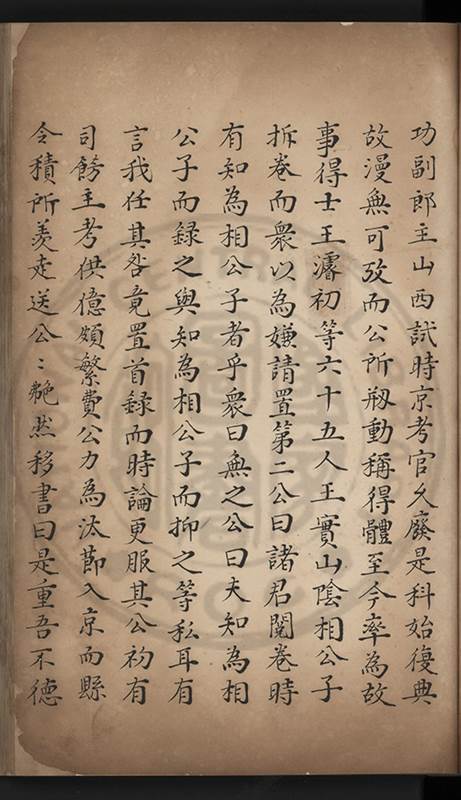 功副郎主山西試時京考官久廢是科始復典
故漫無可攷而公所剏動稱得體至今率為故
事得士王濬初等六十五人王實山陰相公子
拆卷而衆以為嫌請置第二公曰諸君閱卷時
有知為相公子者乎衆曰無之公曰夫知為相
公子而録之與知為相公子而抑之等私耳有
言我任其咎竟置首録而時論更服其公初有
司餙主考供億頗繁費公力為汰節入京而縣
令積所羨走送公〻艴然移書曰是重吾不德